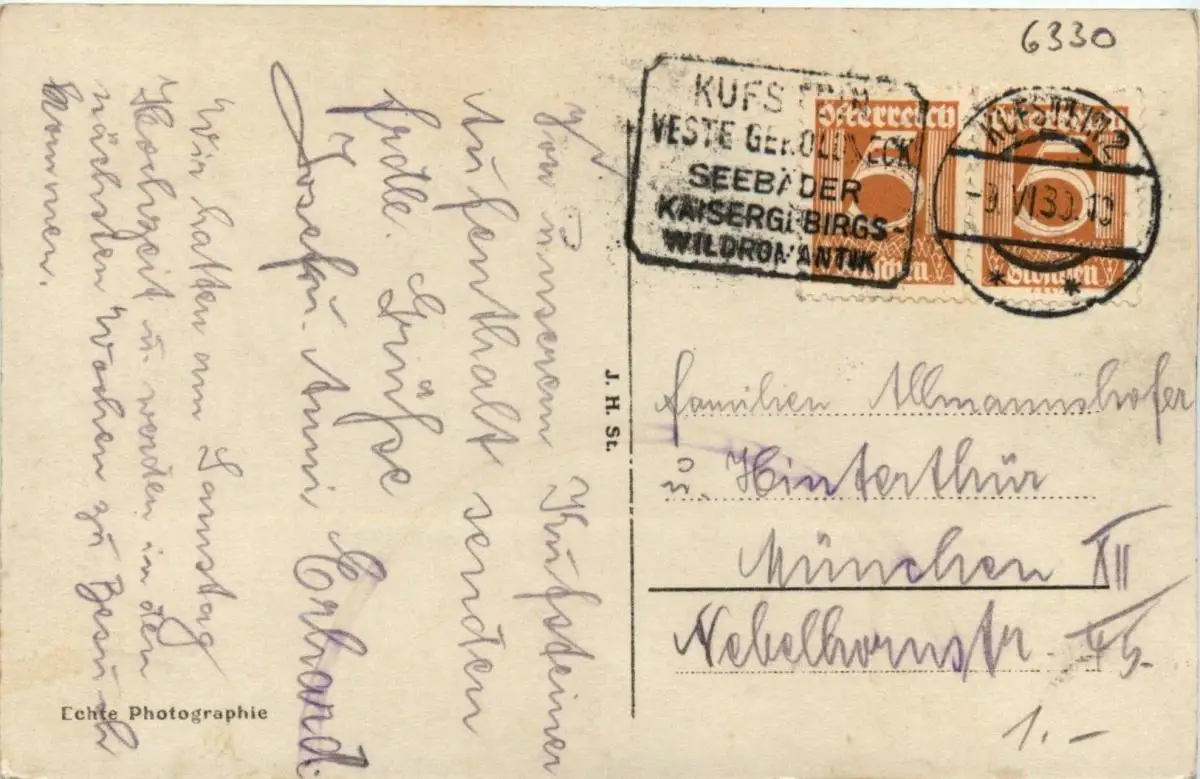 6330
KUFSTEIN
VESTE GEROLDSECK
SEEBÄDER
KAISERGEBIRGS-
WILDROMANTIK
Österreich
5
Groschen
Österreich
5
Groschen
KUFSTEIN 2
-9.VI.30.10
* *
Von unserem Kufsteiner
Aufenthalt senden
frdle. Grüße
Josef u. Anni Erhard.
Wir hatten am Samstag
Hochzeit u. werden in den
nächsten Wochen zu Besuch
kommen.
Echte Photographie
J. H. St.
Familien Allmannshofer
u. Hinterthür
München XII
Nebelhornstr.
1.-